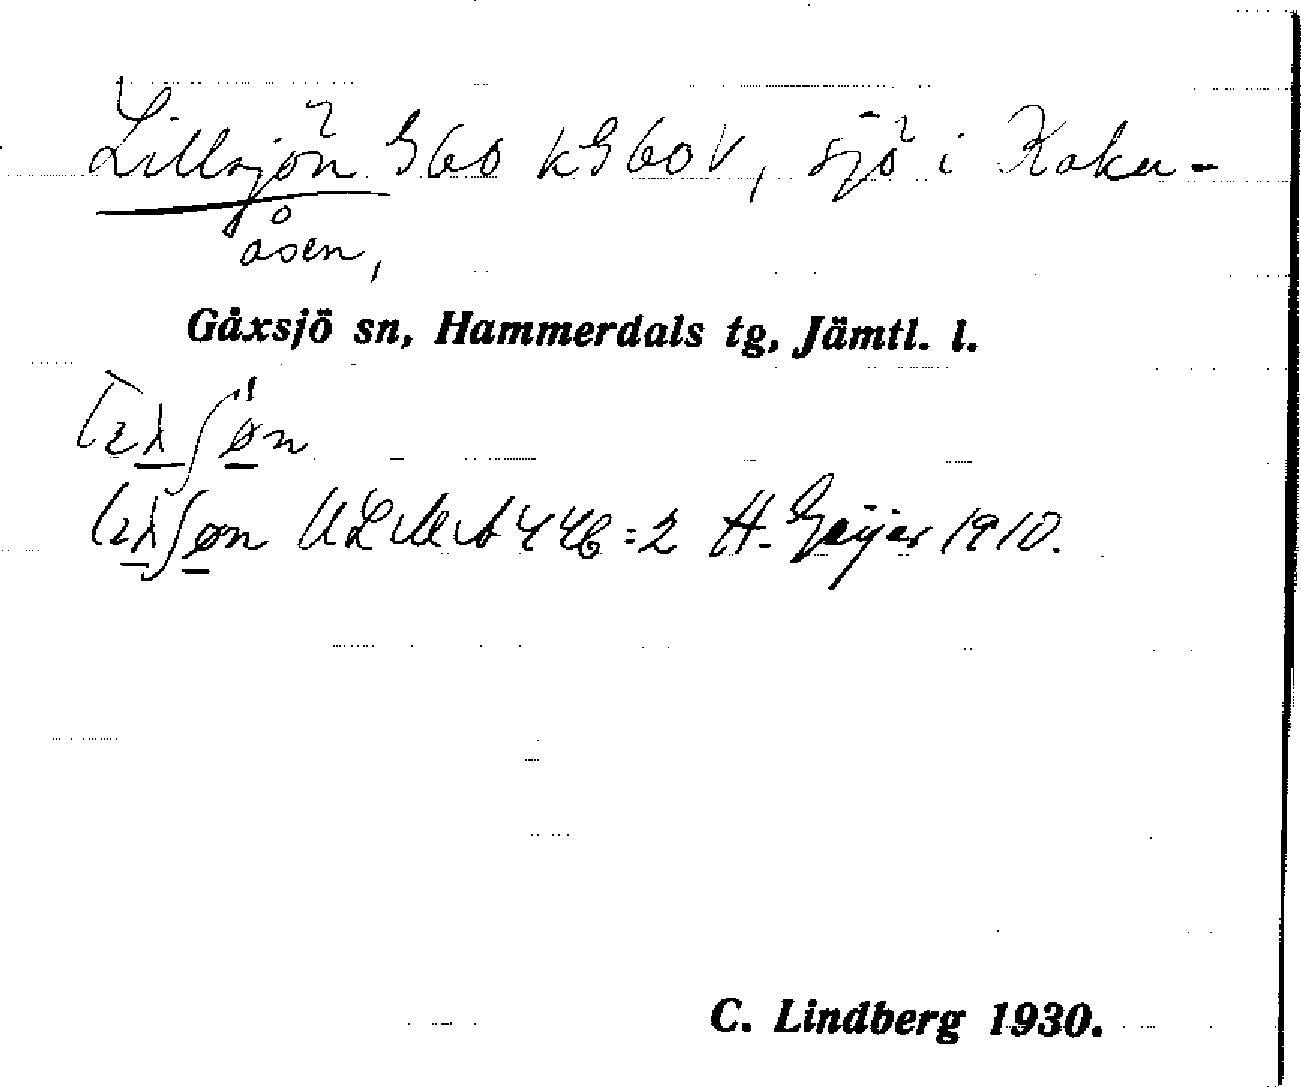 Lillsjön G60 kG60V, sjö i Kaku-
åsen,
Gåxsjö sn, Hammerdals tg, Jämtl. l.
ULMA 446:2 H. Geijer 1910.
C. Lindberg 1930.